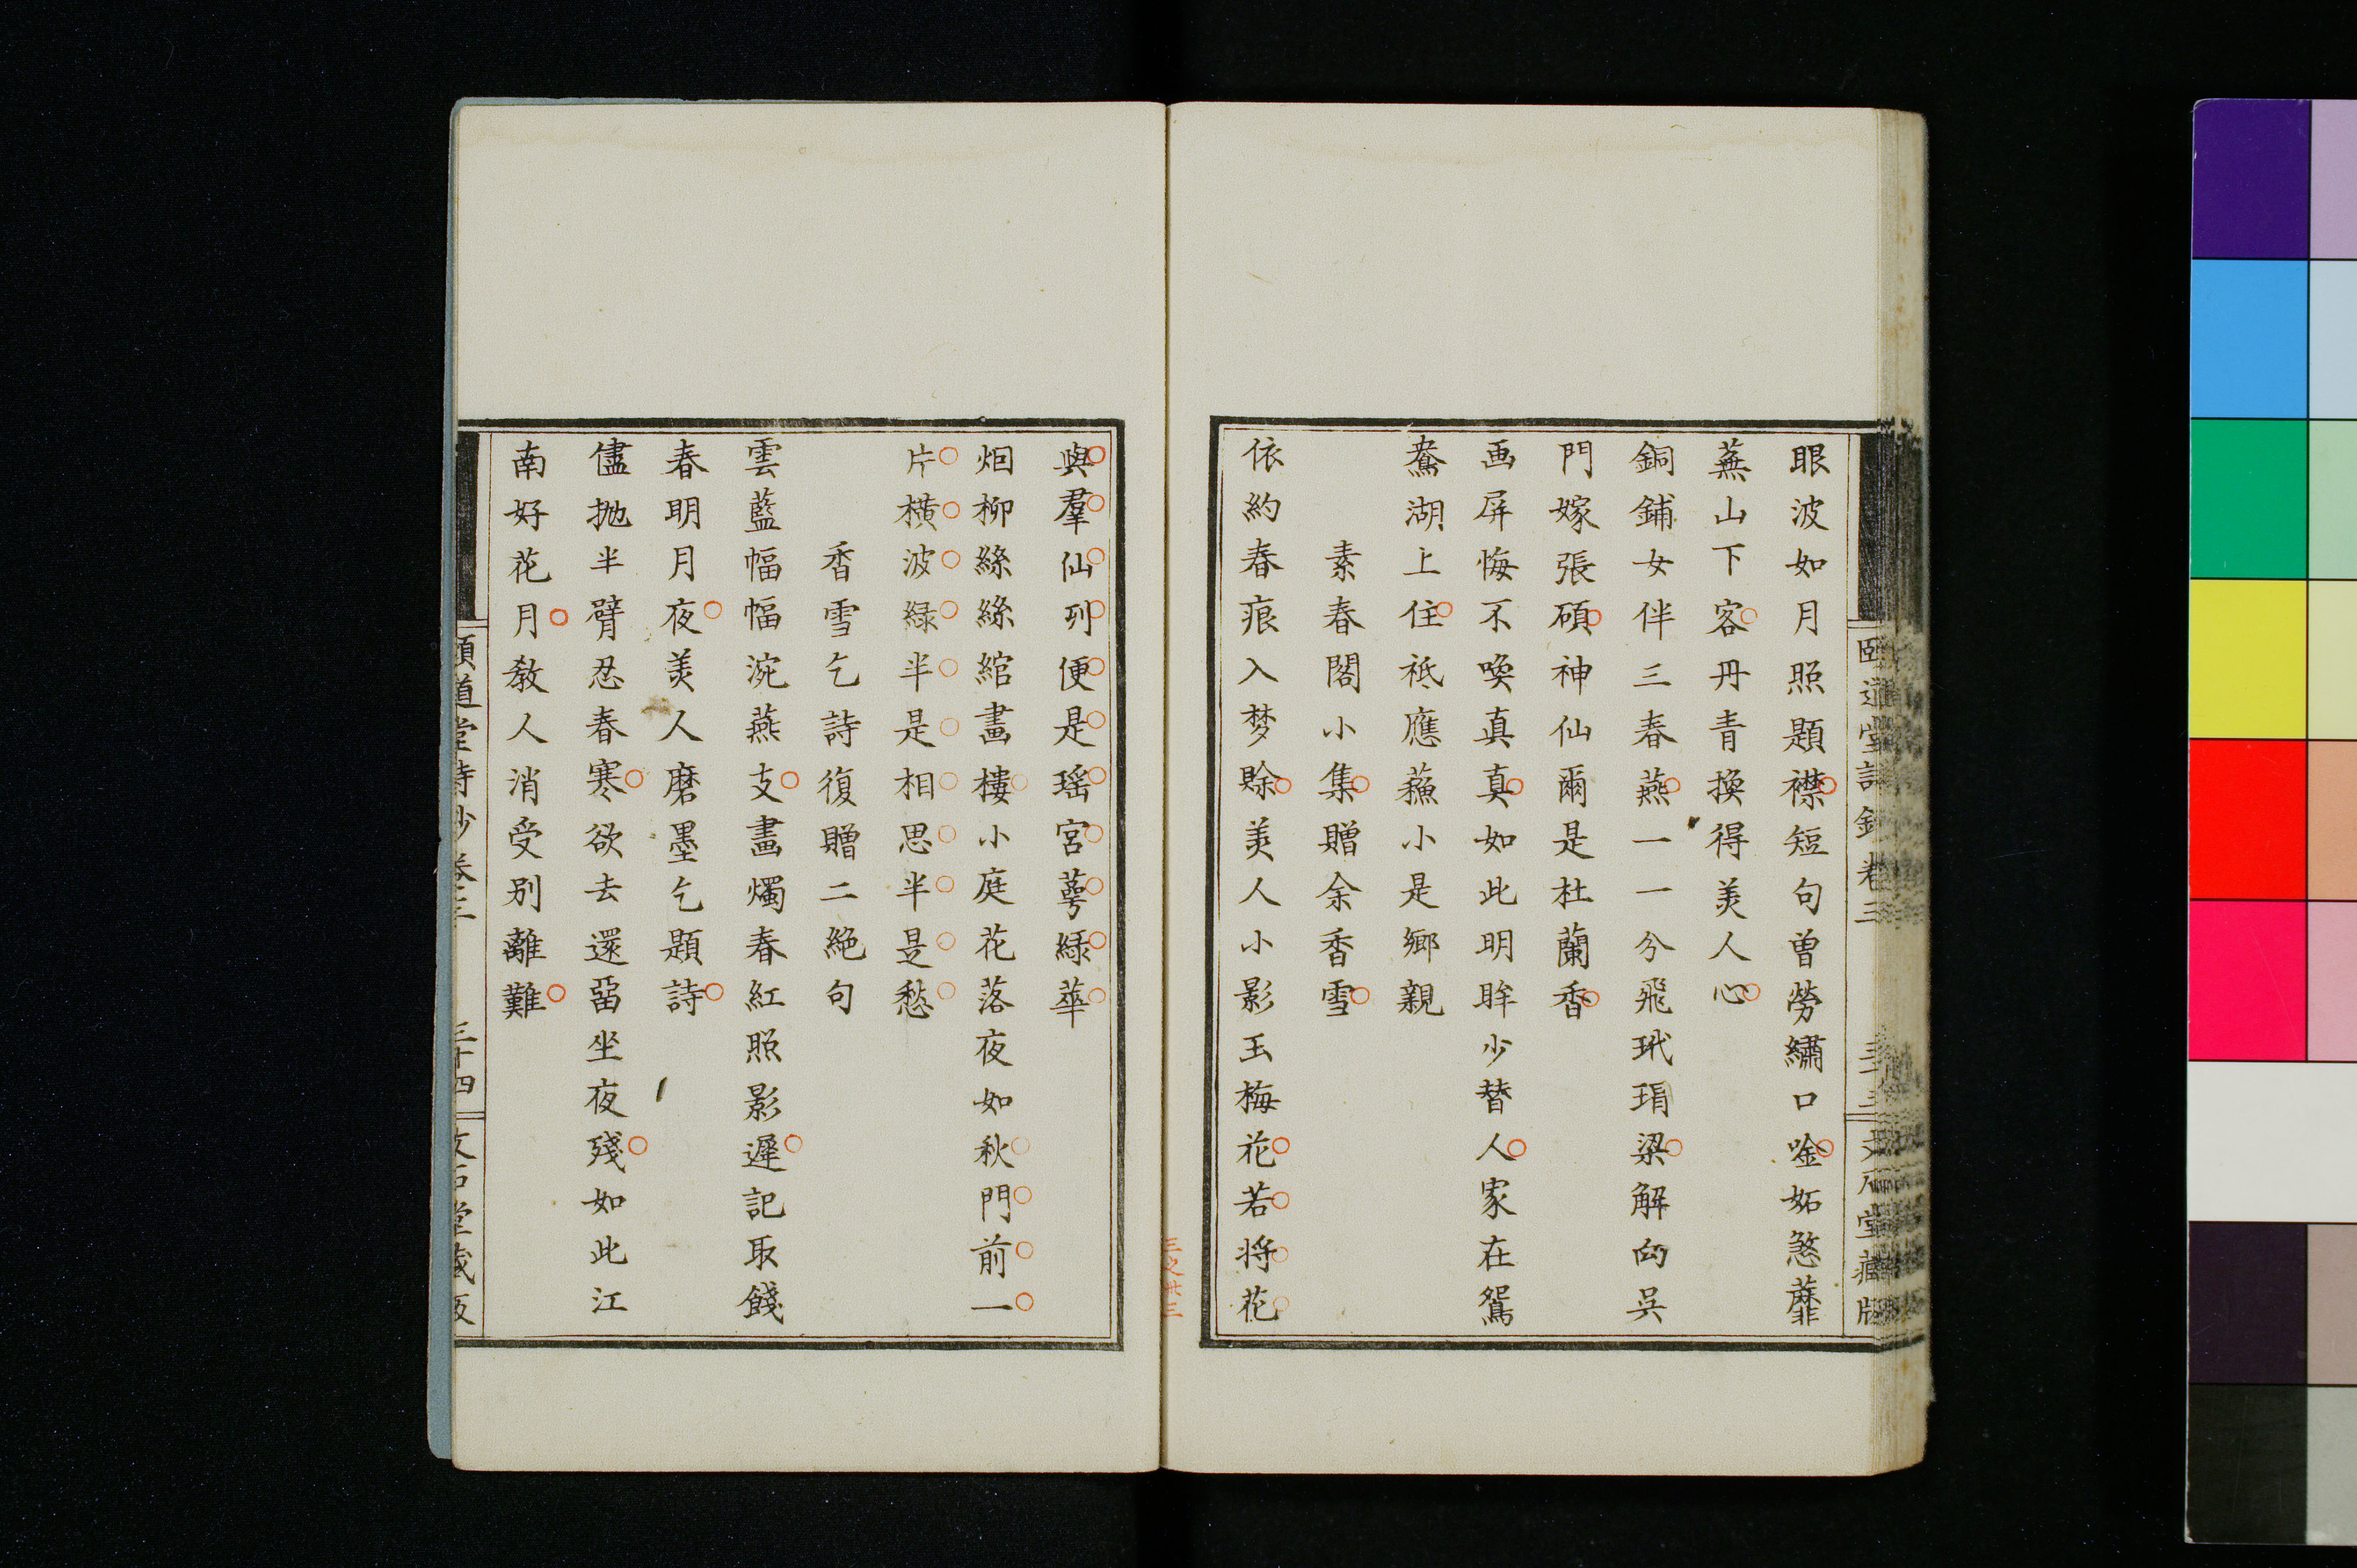 頤道堂詩鈔卷三　三十三　文石堂藏版
眼波如月照題襟短句曽勞繡口唫妬煞蘼
蕪山下客丹青換得美人心
銅鋪女伴三春燕一一分飛玳瑁梁解向吳
門嫁張碩神仙爾是杜蘭香
画屏悔不喚真真如此明眸少替人家在鴛
鴦湖上住祗應蘓小是鄉親
素春閣小集贈余香雪
依約春痕入梦賒美人小影玉梅花若将花
與羣仙列便是瑶宮萼緑華
烟柳絲絲綰畫樓小庭花落夜如秋門前一
片橫波緑半是相思半是愁
香雪乞詩復贈二絶句
雲藍幅幅涴燕支畫燭春紅照影遲記取餞
春明月夜美人磨墨乞題詩
儘抛半臂忍春寒欲去還畱坐夜殘如此江
南好花月教人消受别離難
頤道堂詩鈔卷三　三十四　文石堂藏版
三之卅三